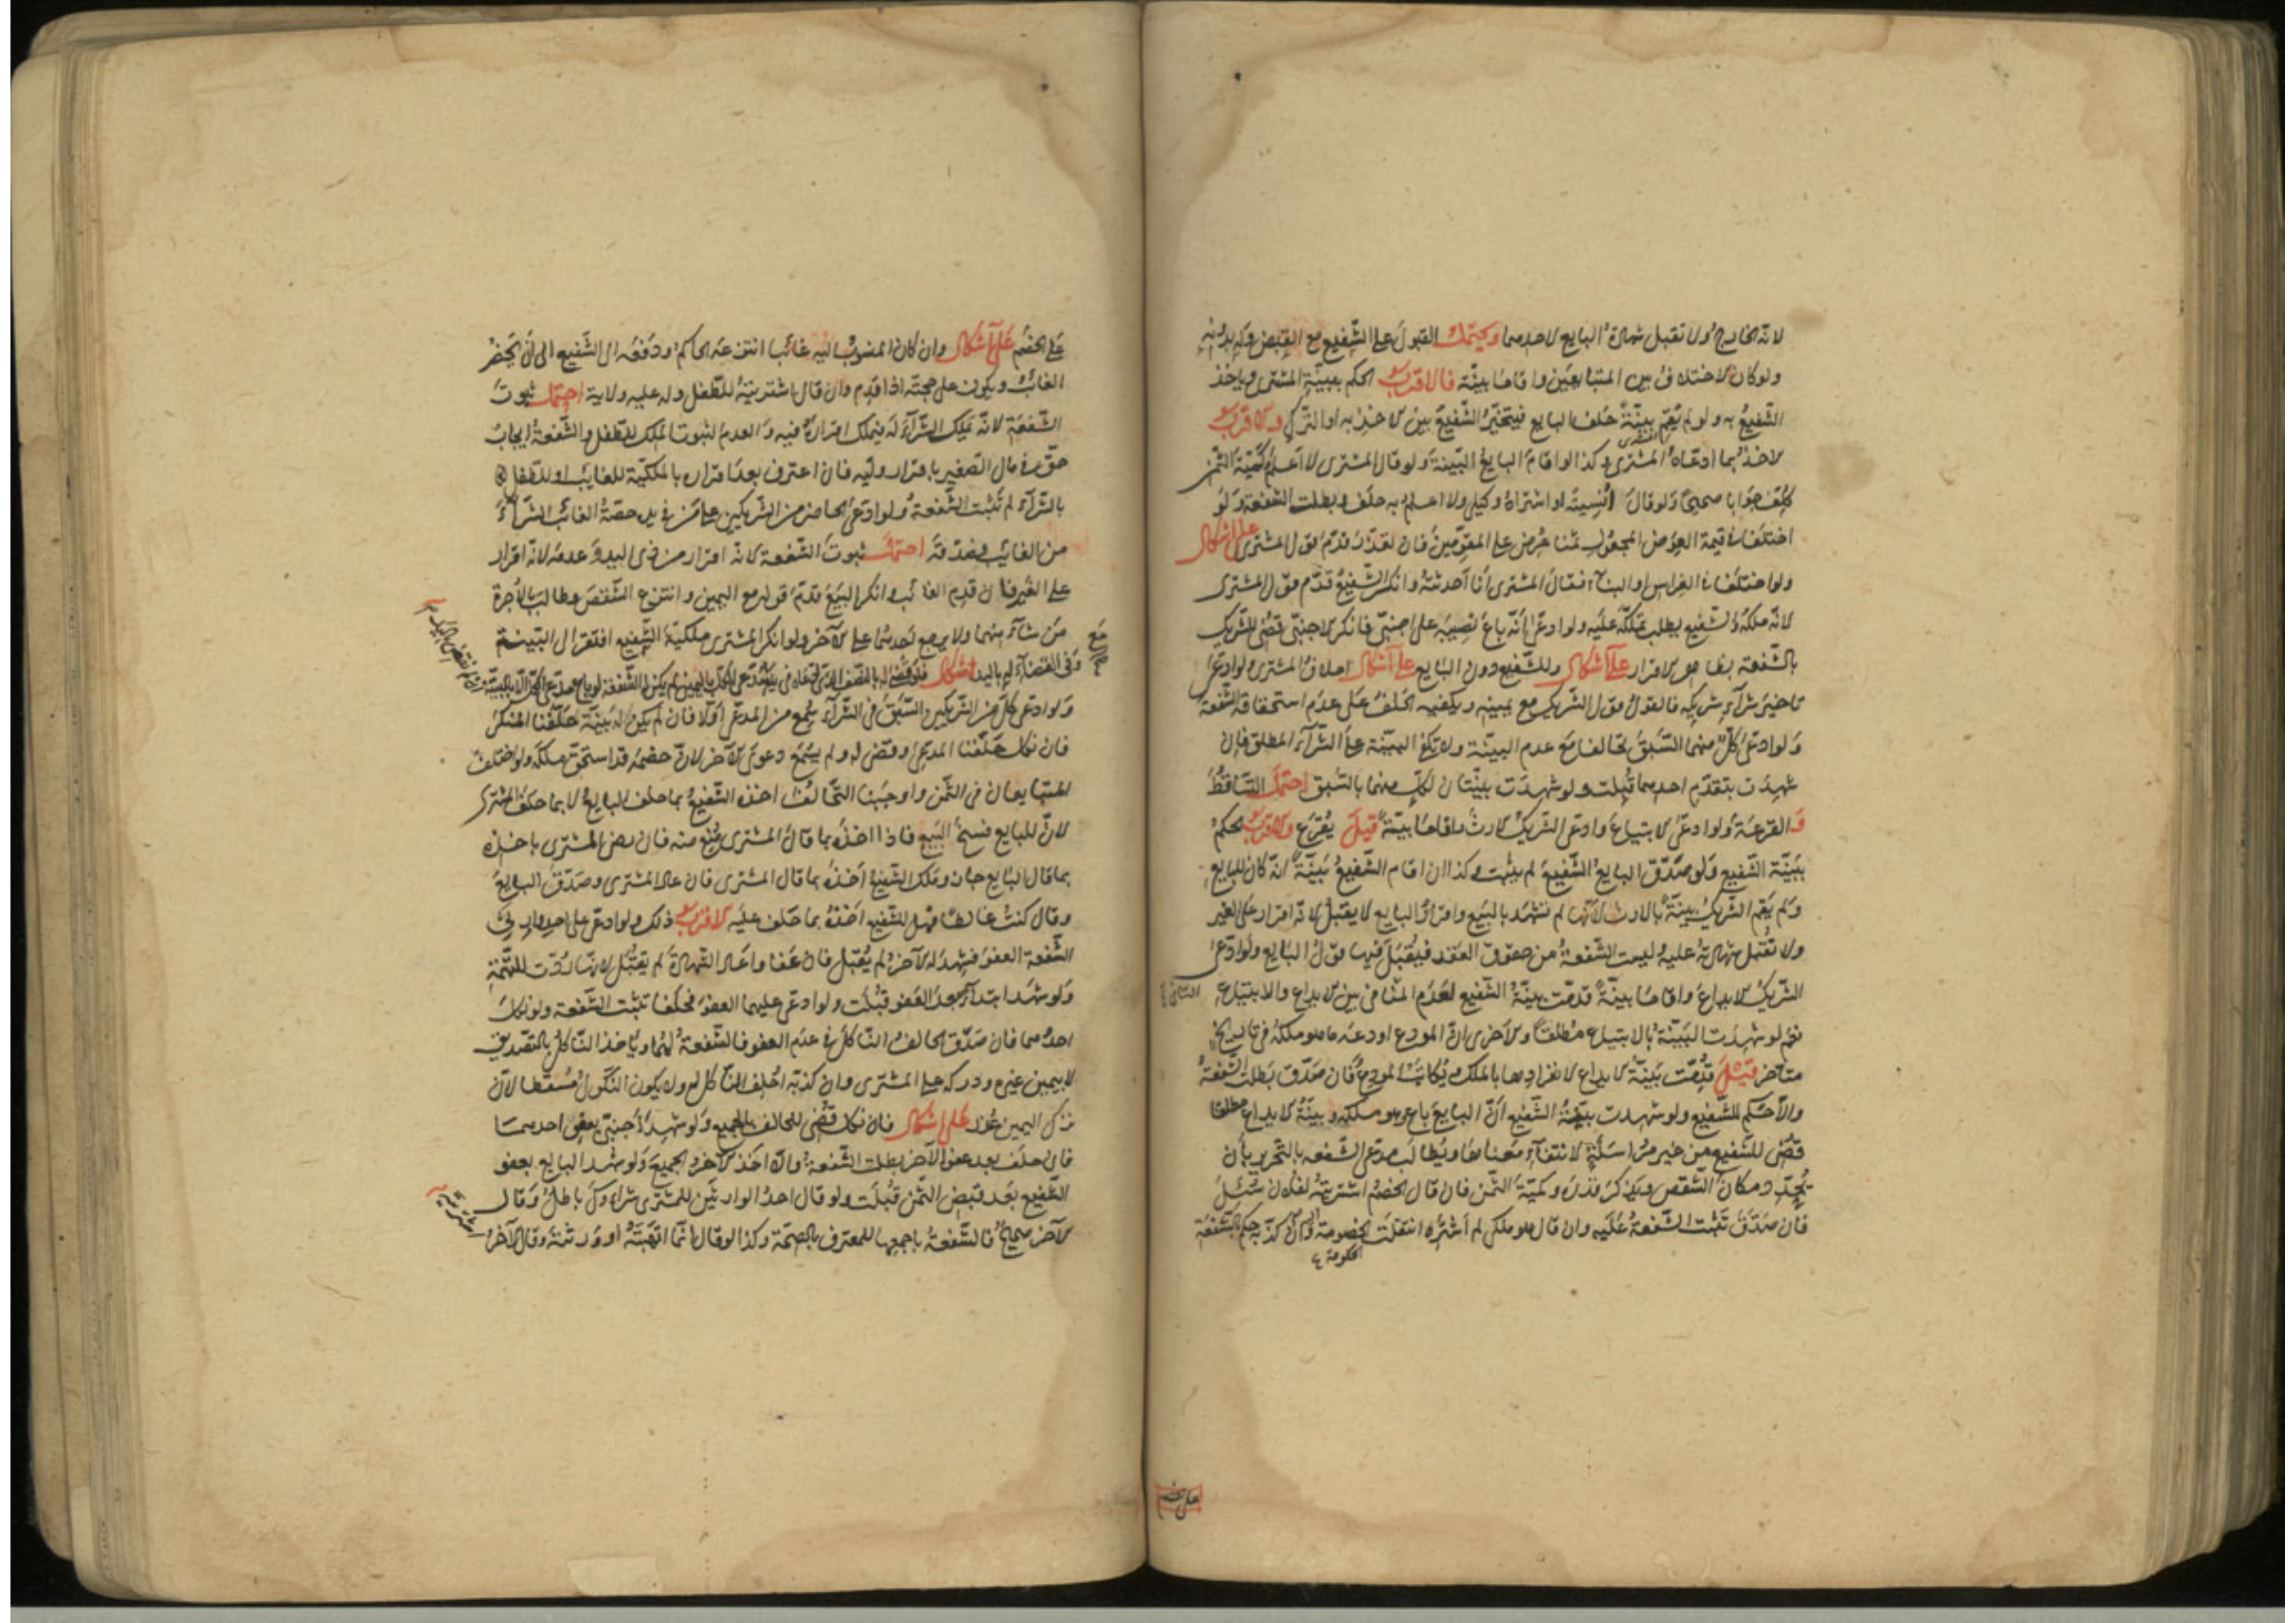 لانه الخارج ولا تقبل شهادة البايع لاحدهما ويحتمل القبول على الشفيع مع القبض وله بدونه
ولو كان الاختلاف بين المتبايعين واقاما بينة فالاقرب الحكم ببينة المشترى وياخذ
الشفيع به ولو لم يقم بينة حلف البايع فيتخير الشفيع بين الاخذ به او الترك والاقرب
الاخذ بما ادعاه المشترى وكذا لو اقام البايع البينة ولو قال المشترى لا اعلم كمية الثمن
كلف جوابا صحيحا ولو قال انسيته او اشتراه وكيلى ولا اعلم به حلف وبطلت الشفعة ولو
اختلفا فى قيمة العوض المجعول ثمنا عرض على المقومين فان تعذر قدم قول المشترى على اشكال
ولو اختلفا فى الغراس او البناء فقال المشترى انا احدثته وانكر الشفيع قدم قول المشترى
لانه ملكه والشفيع يطلب تملكه عليه ولو ادعى انه باع نصيبه على اجنبى فانكر الاجنبى قضى للشريك
بالشفعة بظاهر الاقرار على اشكال وللشفيع دون البايع على اشكال احلاف المشترى ولو ادعى
تاخير شراء شريكه فالقول قول الشريك مع يمينه ويكفيه الحلف على عدم استحقاقه الشفعة
ولو ادعى كل منهما السبق تحالفا مع عدم البينة ولا تكفى البينة على الشراء المطلق فان
شهدت بتقدم احدهما قبلت ولو شهدت بينتان لكل منهما بالسبق احتمل التساقط
و القرعة ولو ادعى الابتياع وادعى الشريك الارث واقاما بينة قيل يقرع والاقرب الحكم
ببينة الشفيع ولو صدق البايع الشفيع لم يثبت وكذا ان اقام الشفيع بينة انه كان للبايع
ولم يقم الشريك بينة بالارث لانها لم تشهد بالبيع واقرار البايع لا يقبل لانه اقرار على الغير
ولا تقبل شهادته عليه وليست الشفعة من حقوق العقد فيقبل فيها قول البايع ولو ادعى
الشريك الايداع واقاما بينة قدمت بينة الشفيع لعدم التنافى بين الايداع والابتياع
نعم لو شهدت البينة بالابتياع مطلقا والاخرى ان المودع اودعه ما هو ملكه فى تاريخ
متاخر قيل قدمت بينة الايداع لانفرادها بالملك ويكاتب المودع فان صدق بطلت الشفعة
والا حكم للشفيع ولو شهدت بينة الشفيع ان البايع باع وهو ملكه وبينة الايداع مطلقا
قضى للشفيع من غير مراسلة لانتفاء معناها ويطالب مدعى الشفعه بالتحرير بان
يحدد مكان الشقص ويذكر قدره وكمية الثمن فان قال الخصم اشتريته لفلان سئل
فان صدق تثبت الشفعة عليه وان قال هو ملكى لم اشتره انتقلت الخصومة اليه وان كذبه حكم بالشفعة
الحكومة
على الخصم على اشكال وان كان المنسوب اليه غائبا انتزعه الحاكم ودفعه الى الشفيع الى ان يحضر
الغائب ويكون على حجته اذا قدم وان قال اشتريته للطفل وله عليه ولاية احتمل ثبوت
الشفعة لانه يملك الشراء له فيملك اقراره فيه والعدم لثبوت الملك للطفل والشفعة ايجاب
حق فى مال الصغير باقرار وليه فان اعترف بعد اقراره بالملكية للغايب او للطفل
بالشراء لم تثبت الشفعة ولو ادعى الحاضر من الشريكين على من فى يده حصة الغائب الشراء
من الغايب فصدقه احتمل ثبوت الشفعة لانه اقرار من ذى اليد وعدمه لانه اقرار
على الغير فان قدم الغائب وانكر البيع قدم قوله مع اليمين وانتزع الشقص وطالب بالاجرة
من شاء منهما ولا يرجع احدهما على الاخر ولو انكر المشترى ملكية الشفيع افتقر الى البينة
وفى القضاء له باليد اشكال
ولو ادعى كل من الشريكين السبق فى الشراء سمع من المدعى اولا فان لم يكن له بينة حلفنا المنكر
فان نكل حلفنا المدعى وقضى له ولم يسمع دعوى الاخر لان خصمه قد استحق ملكه ولو اختلف
المتبايعان فى الثمن واوجبنا التحالف اخذه الشفيع بما حلف البايع لا بما حلف المشترى
لان للبايع فسخ البيع فاذا اخذه بما قال المشترى منع منه فان رضى المشترى باخذه
بما قال البايع جاز وملك الشفيع اخذه بما قال المشترى فان عاد المشترى وصدق البايع
وقال كنت غالطا فهل للشفيع اخذه بما حلف عليه الاقرب ذلك ولو ادعى على احد وارثى
الشفعة العفو فشهد له الاخر لم يقبل فان عفا واعاد الشهادة لم يقبل لانها ردت للتهمة
ولو شهد ابتداء بعد العفو قبلت ولو ادعى عليهما العفو فحلفا تثبت الشفعة ولو نكل
احدهما فان صدق الحالف الناكل فى عدم العفو فالشفعة لهما وياخذ الناكل بالتصديق
لا بيمين غيره ودركه على المشترى وان كذبه احلف الناكل له ولا يكون النكول مسقطا لان
ترك اليمين عذر على اشكال فان نكل قضى للحالف بالجميع ولو شهد اجنبى بعفو احدهما
فان حلف بعد عفو الاخر بطلت الشفعة والا اخذ الاخر الجميع ولو شهد البايع بعفو
الشفيع بعد قبض الثمن قبلت ولو قال احد الوارثين للمشترى شراؤك باطل وقال
الاخر صحيح فالشفعة باجمعها للمعترف بالصحة وكذا لو قال انما اتهبته او ورثته وقال الاخر
اشتريته